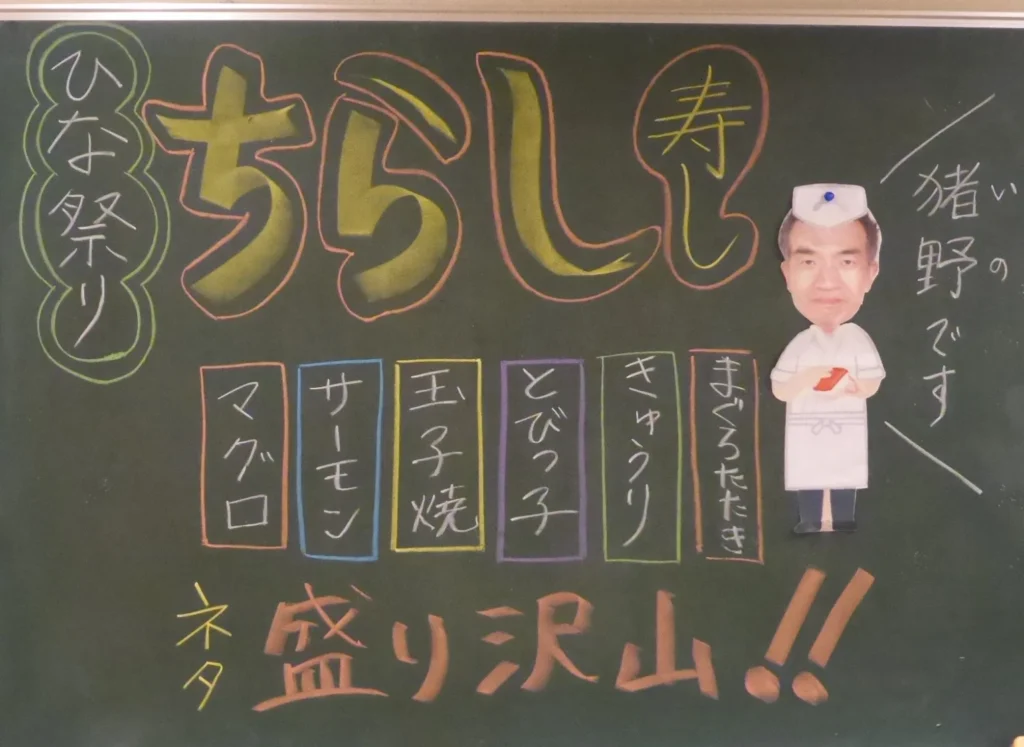 ひな祭り
ちらし寿し
猪野です
いの
マグロ
サーモン
玉子焼
とびっ子
きゅうり
まぐろたたき
ネタ
盛り沢山!!